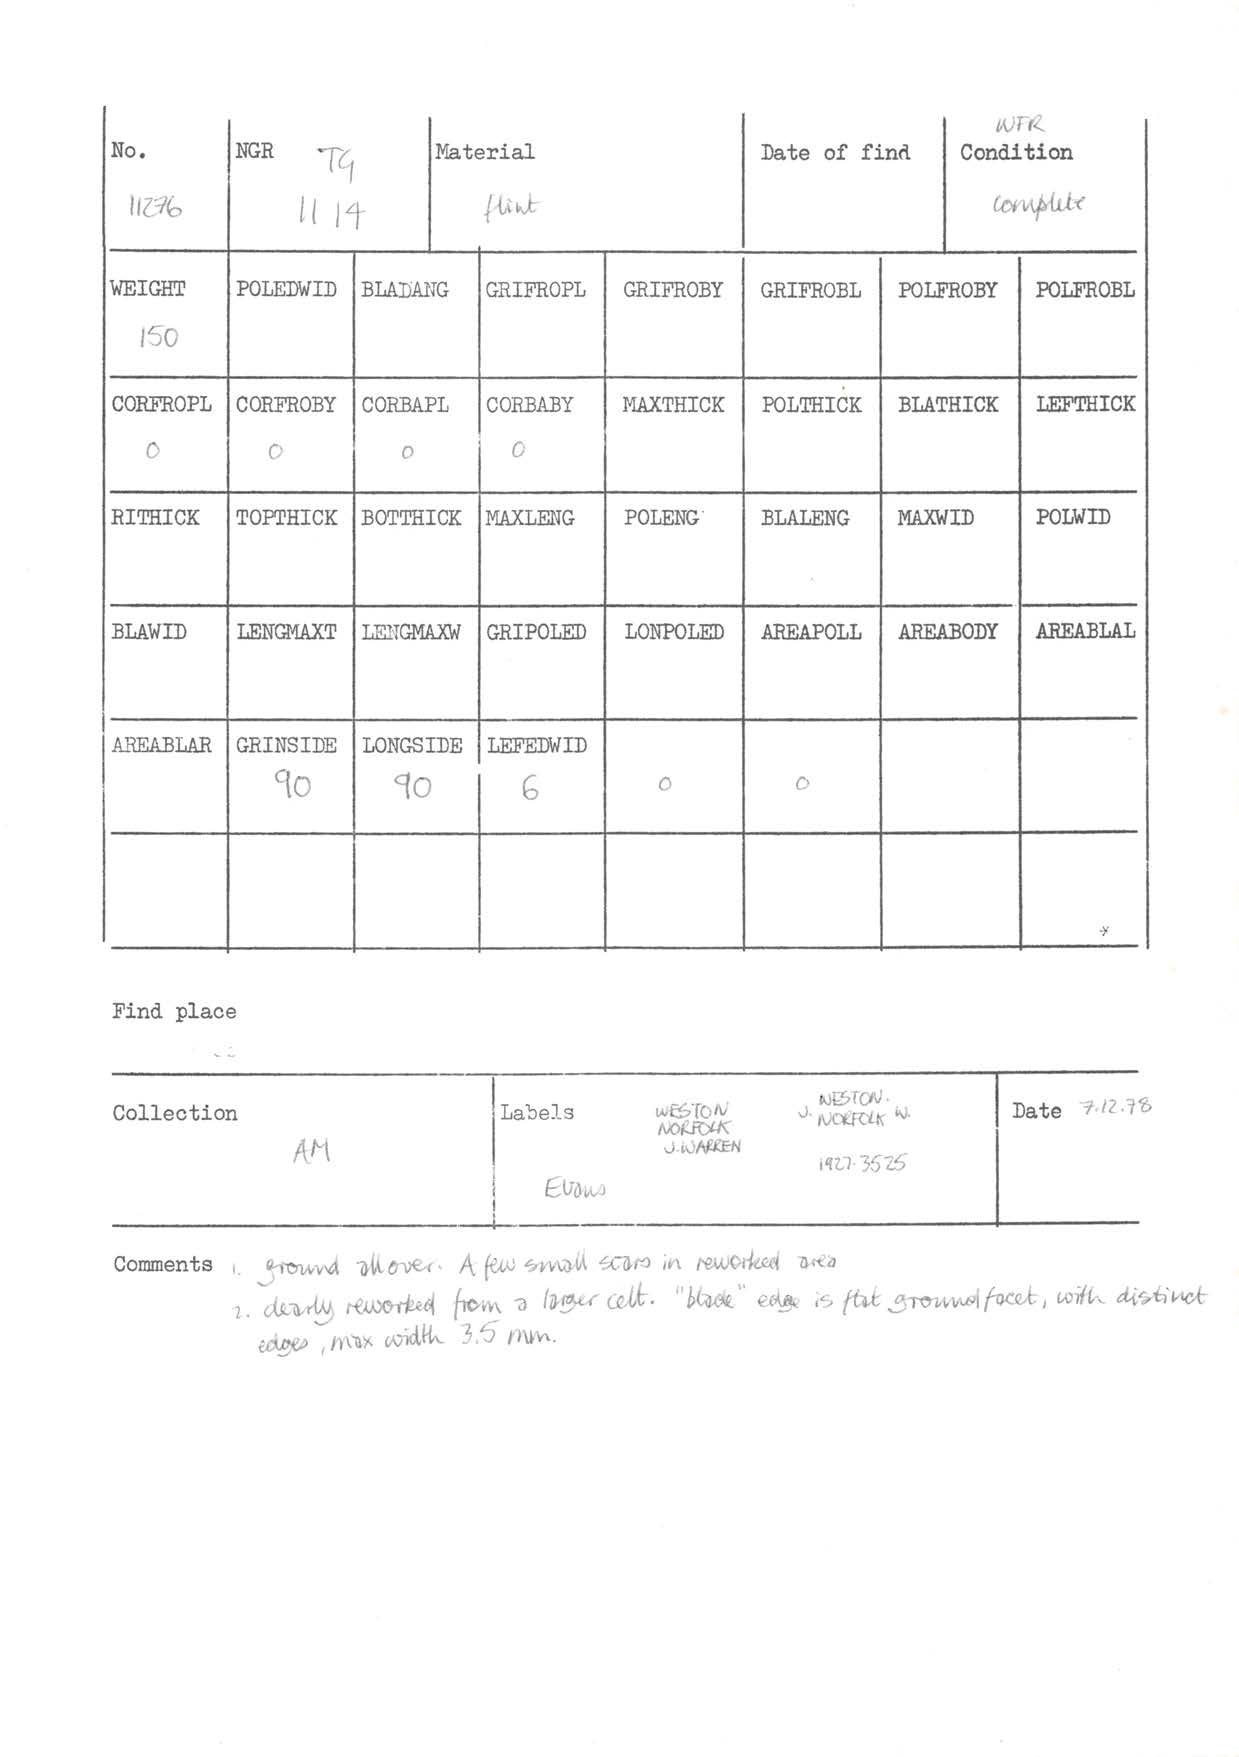 WFR
No. NGR TG Material Date of find Condition
11276 11 14 flint complete
WEIGHT POLEDWID BLADANG GRIFROPL GRIFROBY GRIFROBL POLFROBY POLFROBL
150
CORFROPL CORFROBY CORBAPL CORBABY MAXTHICK POLTHICK BLATHICK LEFTHICK
0 0 0 0
RITHICK TOPTHICK BOTTHICK MAXLENG POLENG BLALENG MAXWID POLWID
BLAWID LENGMAXT LENGMAXW GRIPOLED LONPOLED AREAPOLL AREABODY AREABLAL
AREABLAR GRINSIDE LONGSIDE LEFEDWID
90 90 6 0 0
Find place
Collection
AM
Labels
WESTON
NORFOLK
J. WARREN
WESTON.
J. NORFOLK W.
1927.3525
Evans
Date 7.12.78
Comments 1. ground all over. A few small scars in reworked area
2. clearly reworked from a larger celt. "blade" edge is flat ground facet, with distinct
edges, max width 3.5 mm.